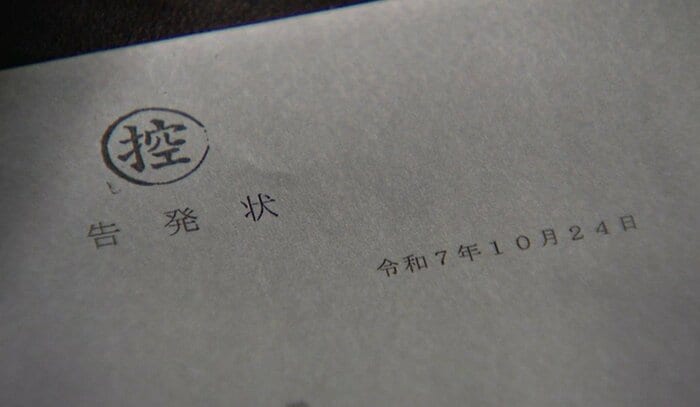 控
告発状
令和７年１０月２４日